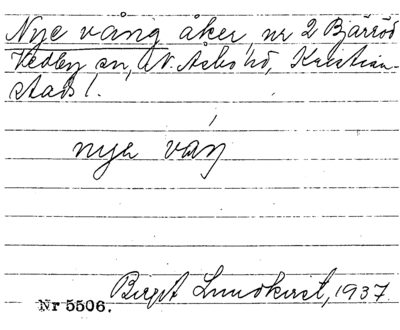 Nye vång åker, nr 2 Bjärröd
Vedby sn, N. Åsbo hd, Kristian-
stads l.
nye vån
Birgit Lundkvist, 1937.
Nr 5506.